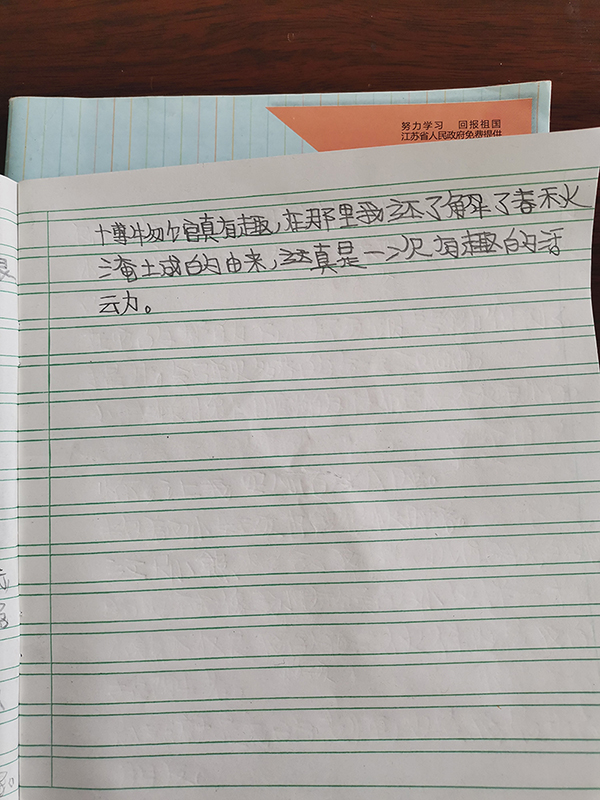 努力学习 回报祖国
江苏省人民政府免费提供
博物馆真有趣,在那里我还了解了春秋
淹城的由来,这真是一次有趣的活
动。